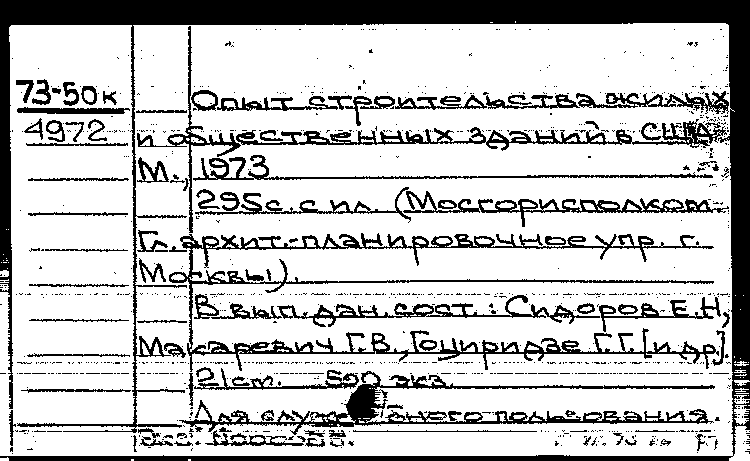 73-50к
4972
Опыт строительства жилых
и общественных зданий в США
М., 1973
295с. с ил. (Мосгорисполком
Гл. архит.-планировочное упр. г.
Москвы).
В вып. дан. сост.: Сидоров Е.Н,
Макаревич Г.В., Гоциридзе Г.Г. [и др].
21cm. 500 экз.
Для служебного пользования.